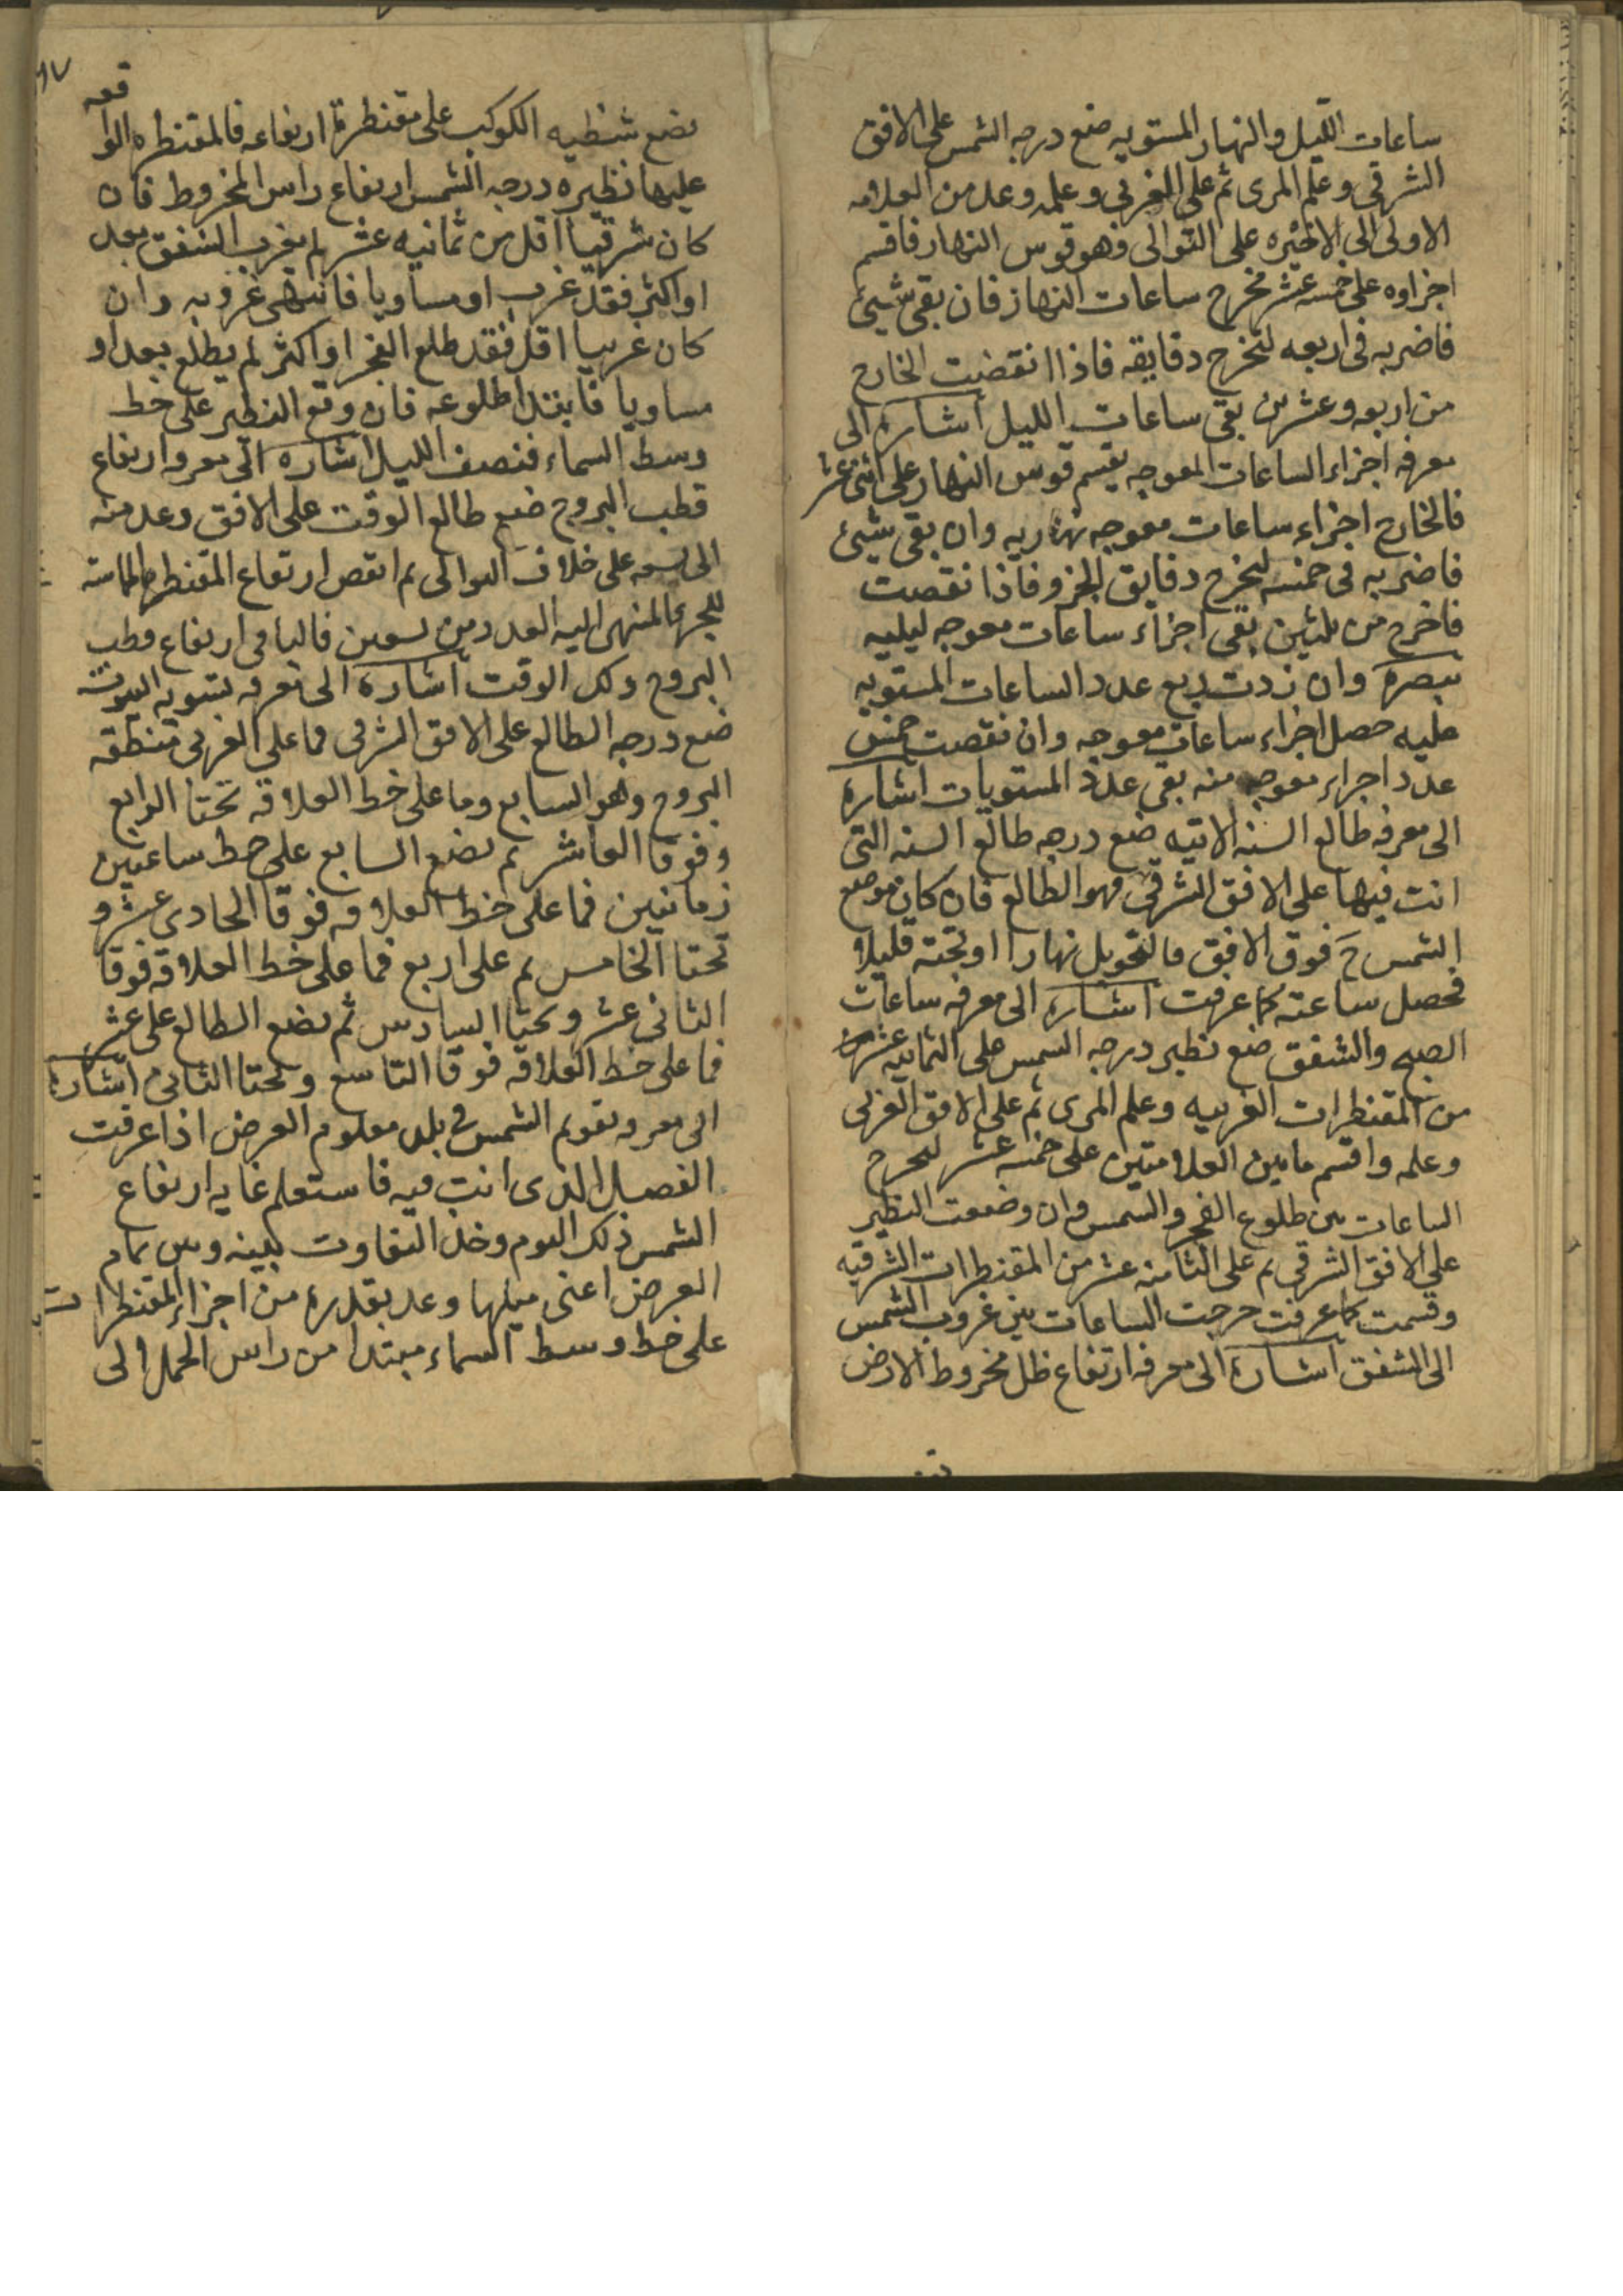 ساعات الليل والنهار المستويه ضع درجه الشمس على الافق
الشرقي وعلم المرى ثم على الغربي وعلمه وعد من العلامه
الاولى الى الاخيره على التوالى فهو قوس النهار فاقسم
اجزاوه على خمسه عشر مخرج ساعات النهار فان بقى شيئ
فاضربه فى اربعه لتخرج دقايقه فاذا انقضت الخارج
من اربعه وعشرين بقى ساعات الليل اشارة الى
معرفه اجزاء الساعات المعوجه يقسم قوس النهار على اثنى عشر
فالخارج اجزاء ساعات معوجه نهاريه وان بقى شيئ
فاضربه فى خمسه ليخرج دقايق الجزو فاذا نقصت
فاخرج من ثلثين بقى اجزاء ساعات معوجه ليليه
تبصرة وان زدت ربع عدد الساعات المستويه
عليه حصل اجزاء ساعات معوجه وان نقصت خمس
عدد اجزاء معوجه منه بقى عدد المستويات اشارة
الى معرفه طالع السنه الاتيه ضع درجه طالع السنه التى
انت فيها على الافق الشرقى فهو الطالع فان كان موضع
الشمس ح فوق الافق فالتحويل نهارا او تحته فليلا
فحصل ساعته كما عرفت اشارة الى معرفه ساعات
الصبح والشفق ضع نظير درجه الشمس على الثمانيه عشر
من المقنطرات الغربيه وعلم المرى ثم على الافق الغربى
وعلمه واقسم مابين العلامتين على خمسه عشر ليخرج
الساعات بين طلوع الفجر والشمس وان وضعت النظير
على الافق الشرقي ثم على الثامنه عشر من المقنطرات الشرقيه
وقسمت كما عرفت خرجت الساعات بين غروب الشمس
الى الشفق اشارة الى معرفه ارتفاع ظل مخروط الارض
تضع
٩٧
تضع شظيه الكوكب على مقنطرة ارتفاعه فالمقنطره الوا قعه
عليها نظيره درجه الشمس ارتفاع راس المخروط فان
كان شرقيا اقل من ثمانيه عشر لم يغرب الشفق بعد
او اكثر فقد غرب او مساويا فانتهى غروبه وان
كان غربيا اقل فقد طلع الفجر او اكثر لم يطلع بعد او
مساويا فابتدا طلوعه فان وقع النظير على خط
وسط السماء فنصف الليل اشارة الى معرفه ارتفاع
قطب البروج ضع طالع الوقت على الافق وعد منه
الى تسعه على خلاف التوالى ثم انقص ارتفاع المقنطره المماسه
للجزء المنتهى اليه العدد من تسعين فالباقى ارتفاع قطب
البروج ذلك الوقت اشارة الى معرفه تسويه البيوت
ضع درجه الطالع على الافق الشرقى فما على الغربى منطقه
البروج وهو السابع وما على خط العلاقه تحتا الرابع
وفوقا العاشر ثم تضع السابع على خط ساعتين
زمانيتين فما على خط العلاقه فوقا الحادى عشر و
تحتا الخامس ثم على اربع فما على خط العلاقه فوقا
الثانى عشر وتحتا السادس ثم تضع الطالع على عشر
فما على خط العلاقه فوقا التاسع وتحتا الثانى اشارة
الى معرفه تقويم الشمس فى بلد معلوم العرض اذا عرفت
الفصل الذى انت فيه فاستعلم غايه ارتفاع
الشمس ذلك اليوم وخذ التفاوت بينه وبين تمام
العرض اعنى ميلها وعد بقدره من اجزاء المقنطرات
على خط وسط السماء مبتدا من راس الحمل الى